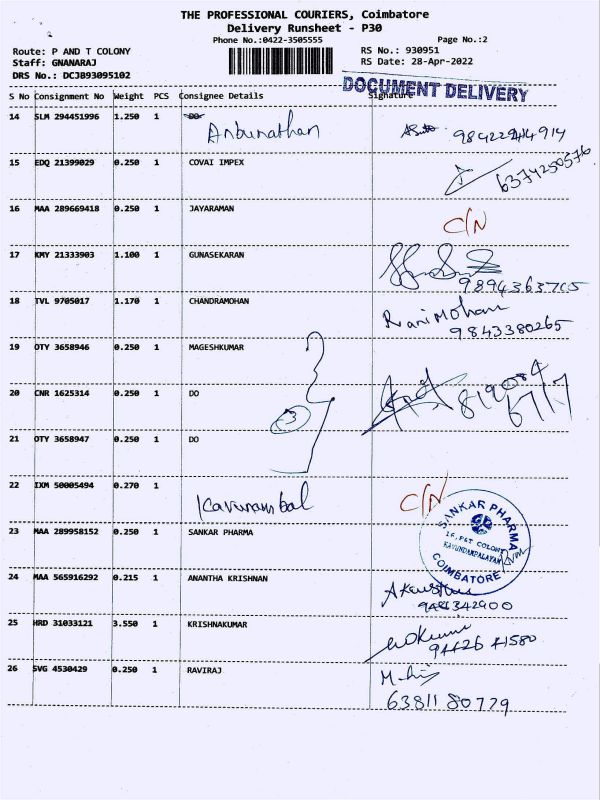 THE PROFESSIONAL COURIERS, Coimbatore
Delivery Runsheet - P30
Phone No.:0422-3505555
Page No.:2
Route: P AND T COLONY
RS No.: 930951
Staff: GNANARAJ
RS Date: 28-Apr-2022
DRS No.: DCJB93095102
DOCUMENT DELIVERY
S No Consignment No Weight PCS Consignee Details Signature
14 SLM 294451996 1.250 1 Anbunathan
15 EDQ 21399029 0.250 1 COVAI IMPEX 6374250576
16 MAA 289669418 0.250 1 JAYARAMAN C/N
17 KMY 21333903 1.100 1 GUNASEKARAN
18 TVL 9705017 1.170 1 CHANDRAMOHAN Rani Mohan
9843380265
19 OTY 3658946 0.250 1 MAGESHKUMAR
20 CNR 1625314 0.250 1 DO
3
21 OTY 3658947 0.250 1 DO
22 IXM 50005494 0.270 1 Kavunambal C/N
23 MAA 289958152 0.250 1 SANKAR PHARMA
SANKAR PHARMA
16, P&T COLONY
KAVUNDAMPALAYAM
COIMBATORE
24 MAA 565916292 0.215 1 ANANTHA KRISHNAN
25 HRD 31033121 3.550 1 KRISHNAKUMAR
94426 41580
26 SVG 4530429 0.250 1 RAVIRAJ
63811 80779